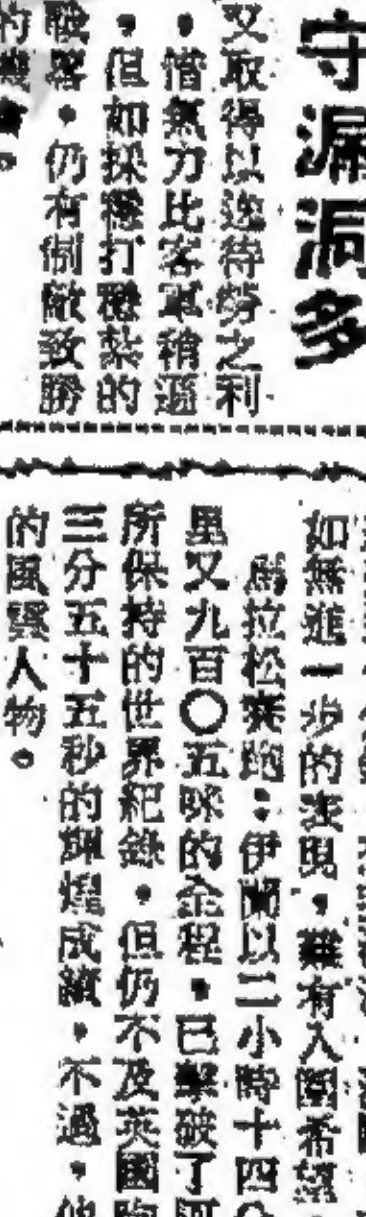 守漏洞多
又取得以逸待勞之利
，惜氣力比客軍稍遜
，但如採穩打穩紮的
戰畧，仍有制敵致勝
的機會。
如無進一步的表現，難有入圍希望
馬拉松賽跑：伊蘭以二小時十四分
里又九百〇五咪的全程，已擊破了阿
所保持的世界紀錄，但仍不及英國
三分五十五秒的輝煌成績，不過，他
的風雲人物。